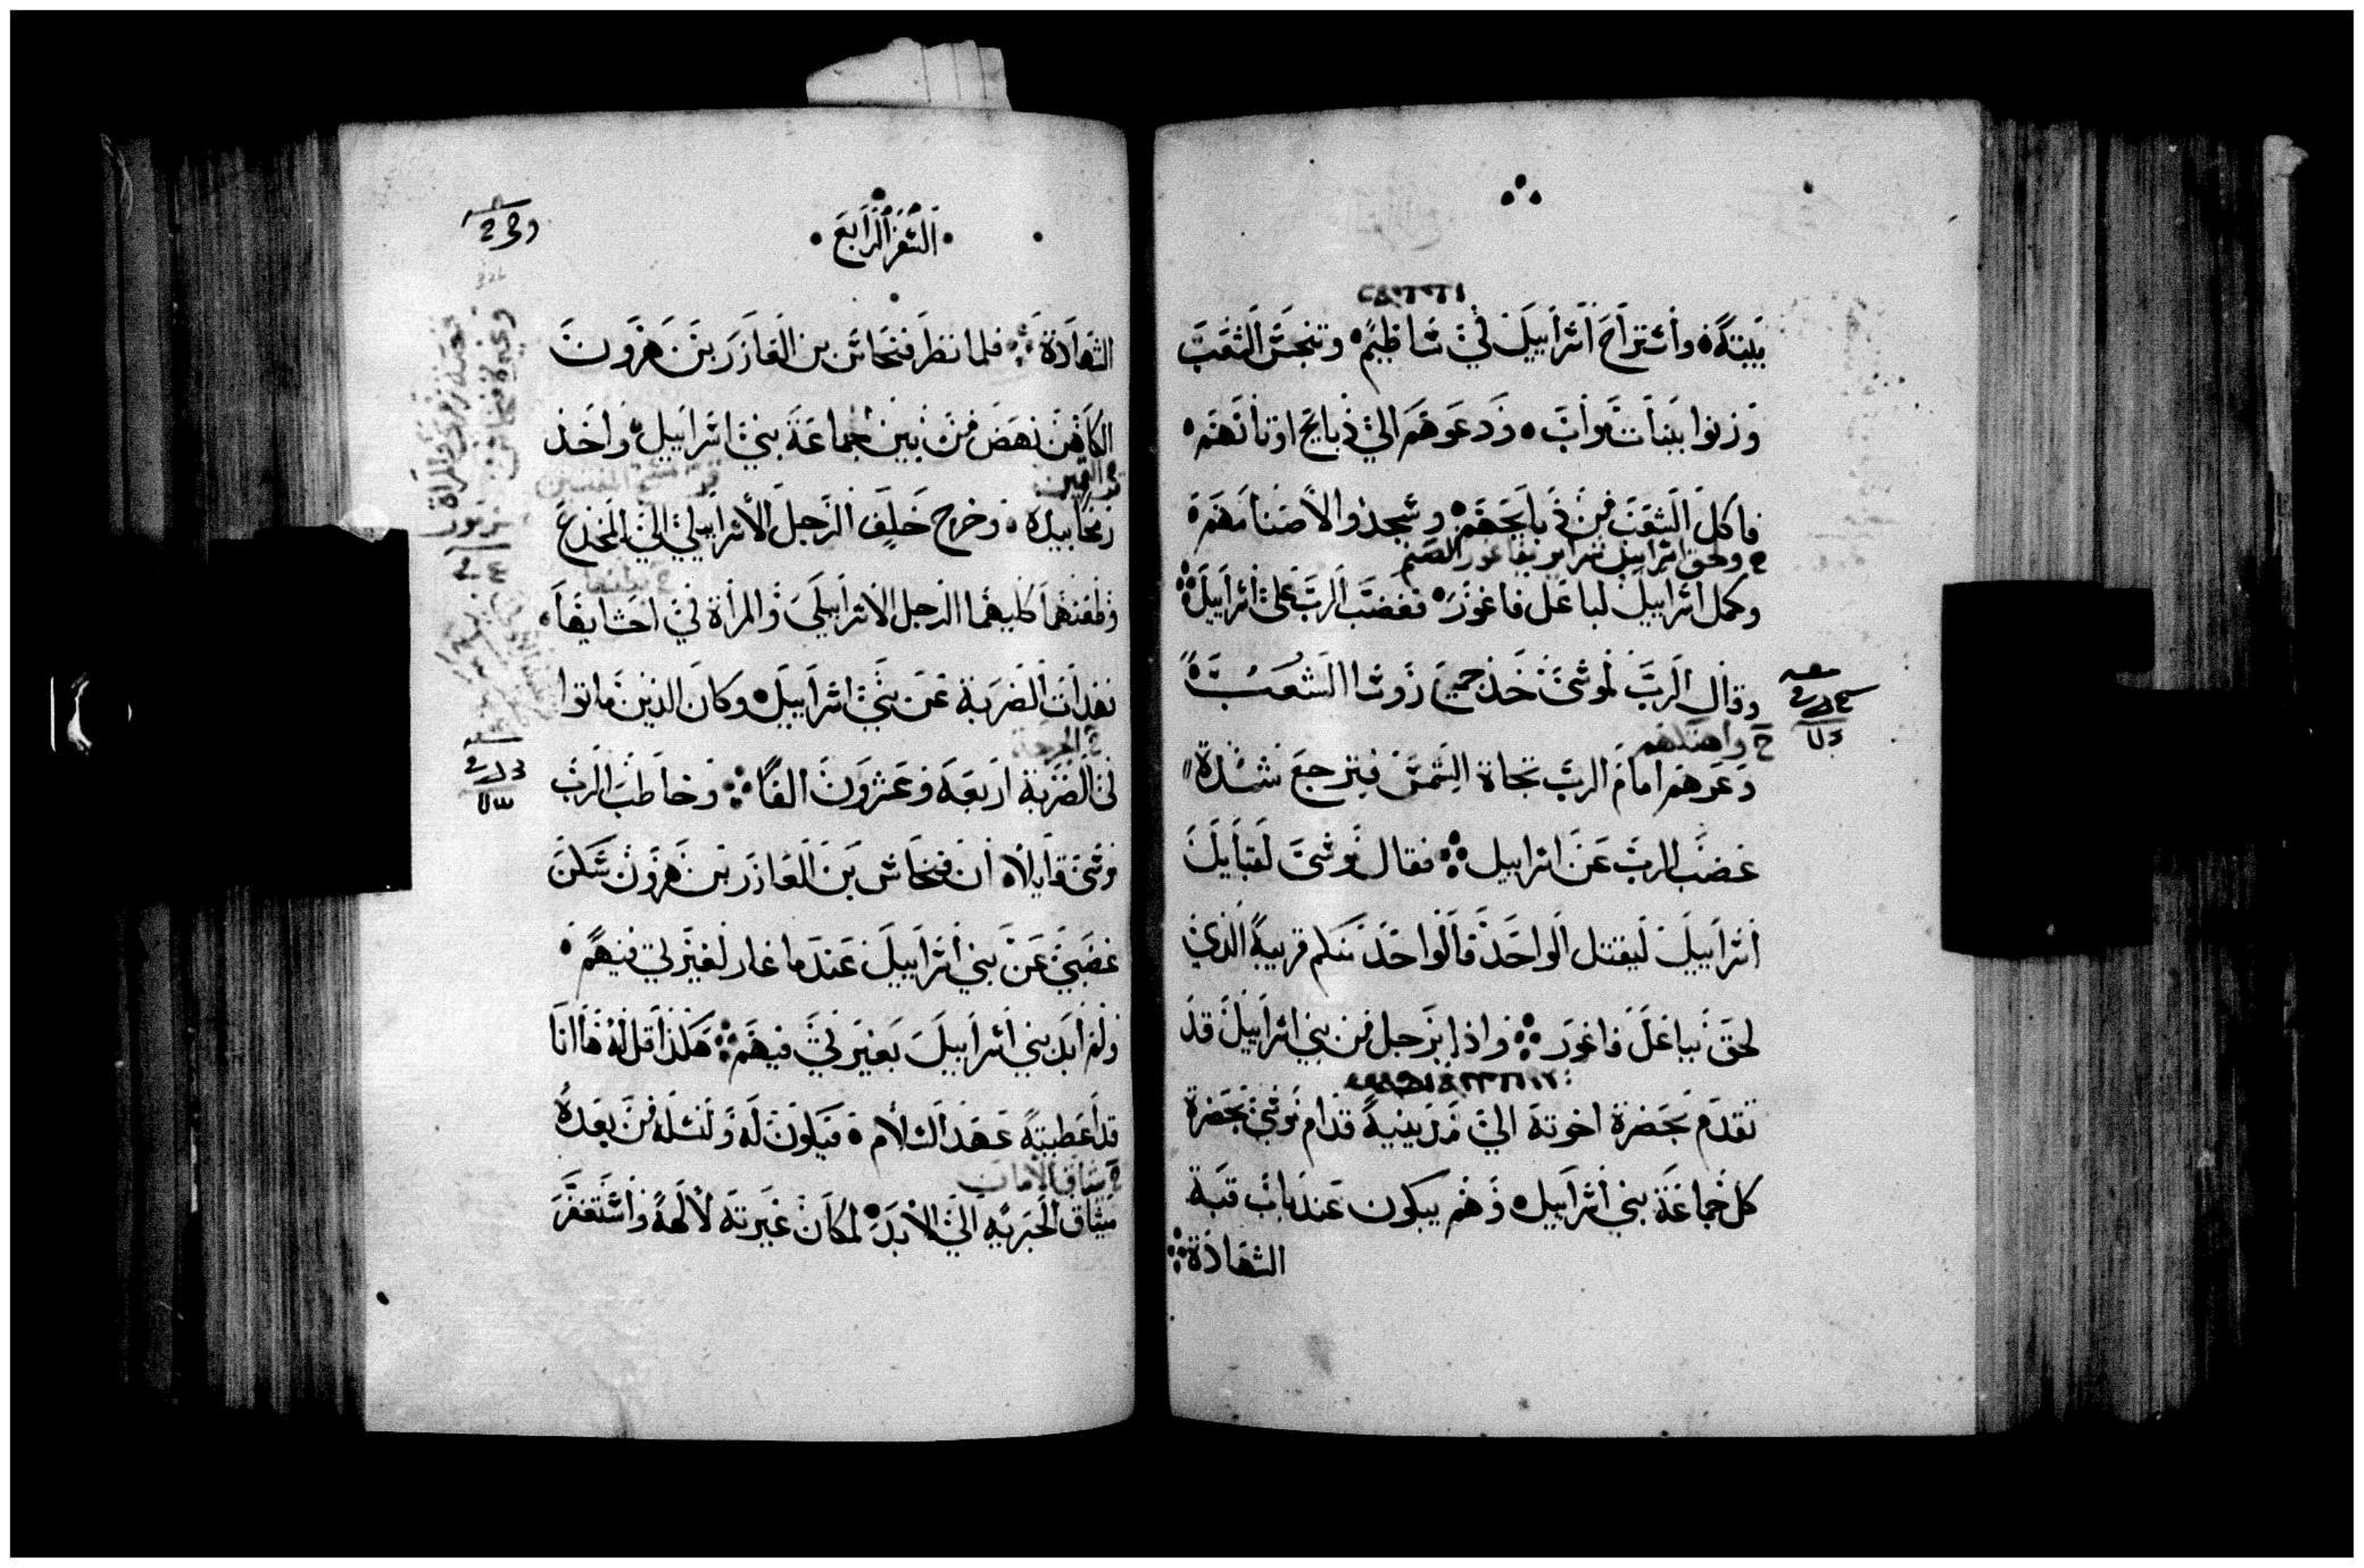 بيته وأستراح اسراييل في ساطيم وتنجس الشعب
وزنوا ببنات مواب ودعوهم الي ذبايح اوثانهم
فاكل الشعب من ذبايحهم وسجدوا لاصنامهم
وكمل اسراييل لباعل فاغور فغضب الرب علي اسراييل
وقال الرب لموسي خذ جميع روسا الشعب
وا
وعرهم امام الرب تجاة الشمس فيرجع شدة
غضب الرب عن اسراييل فقال موسي لقبايل
اسراييل ليقتل الواحد فالواحد منكم قريبه الذي
لحق بباعل فاغور واذا برجل من بني اسراييل قد
تقدم بحضرة اخوته الي مديينية قدام موسي بحضرة
كل جماعة بني اسراييل وهم يبكون عند باب قبة
الشهادة
السفر الرابع
الشهادة فلما نظر فنحاس بن العازر بن هرون
الكاهن نهض من بين جماعة بني اسراييل واخذ
بيده وخرج خلف الرجل الأسراييلي الي المخدع
وطعنهما كليهما الرجل الاسراييلي والمراة في احشايها
فهدات الضربة عن بني اسراييل وكان الذين ماتوا
في الضربة اربعة وعشرون الفا وخاطب الرب
موسي قايلا ان فنحاس بن العازر بن هرون سكن
غضبي عن بني اسراييل عندما غار لغيرتي فيهم
ولم ابد بني اسراييل بغيرتي فيهم هكذا قل له هاانا
قد اعطيته عهد السلام فيكون له ولنسله من بعده
ميثاق الحبريه الي الابد لمكان غيرته لالهه واستغفر